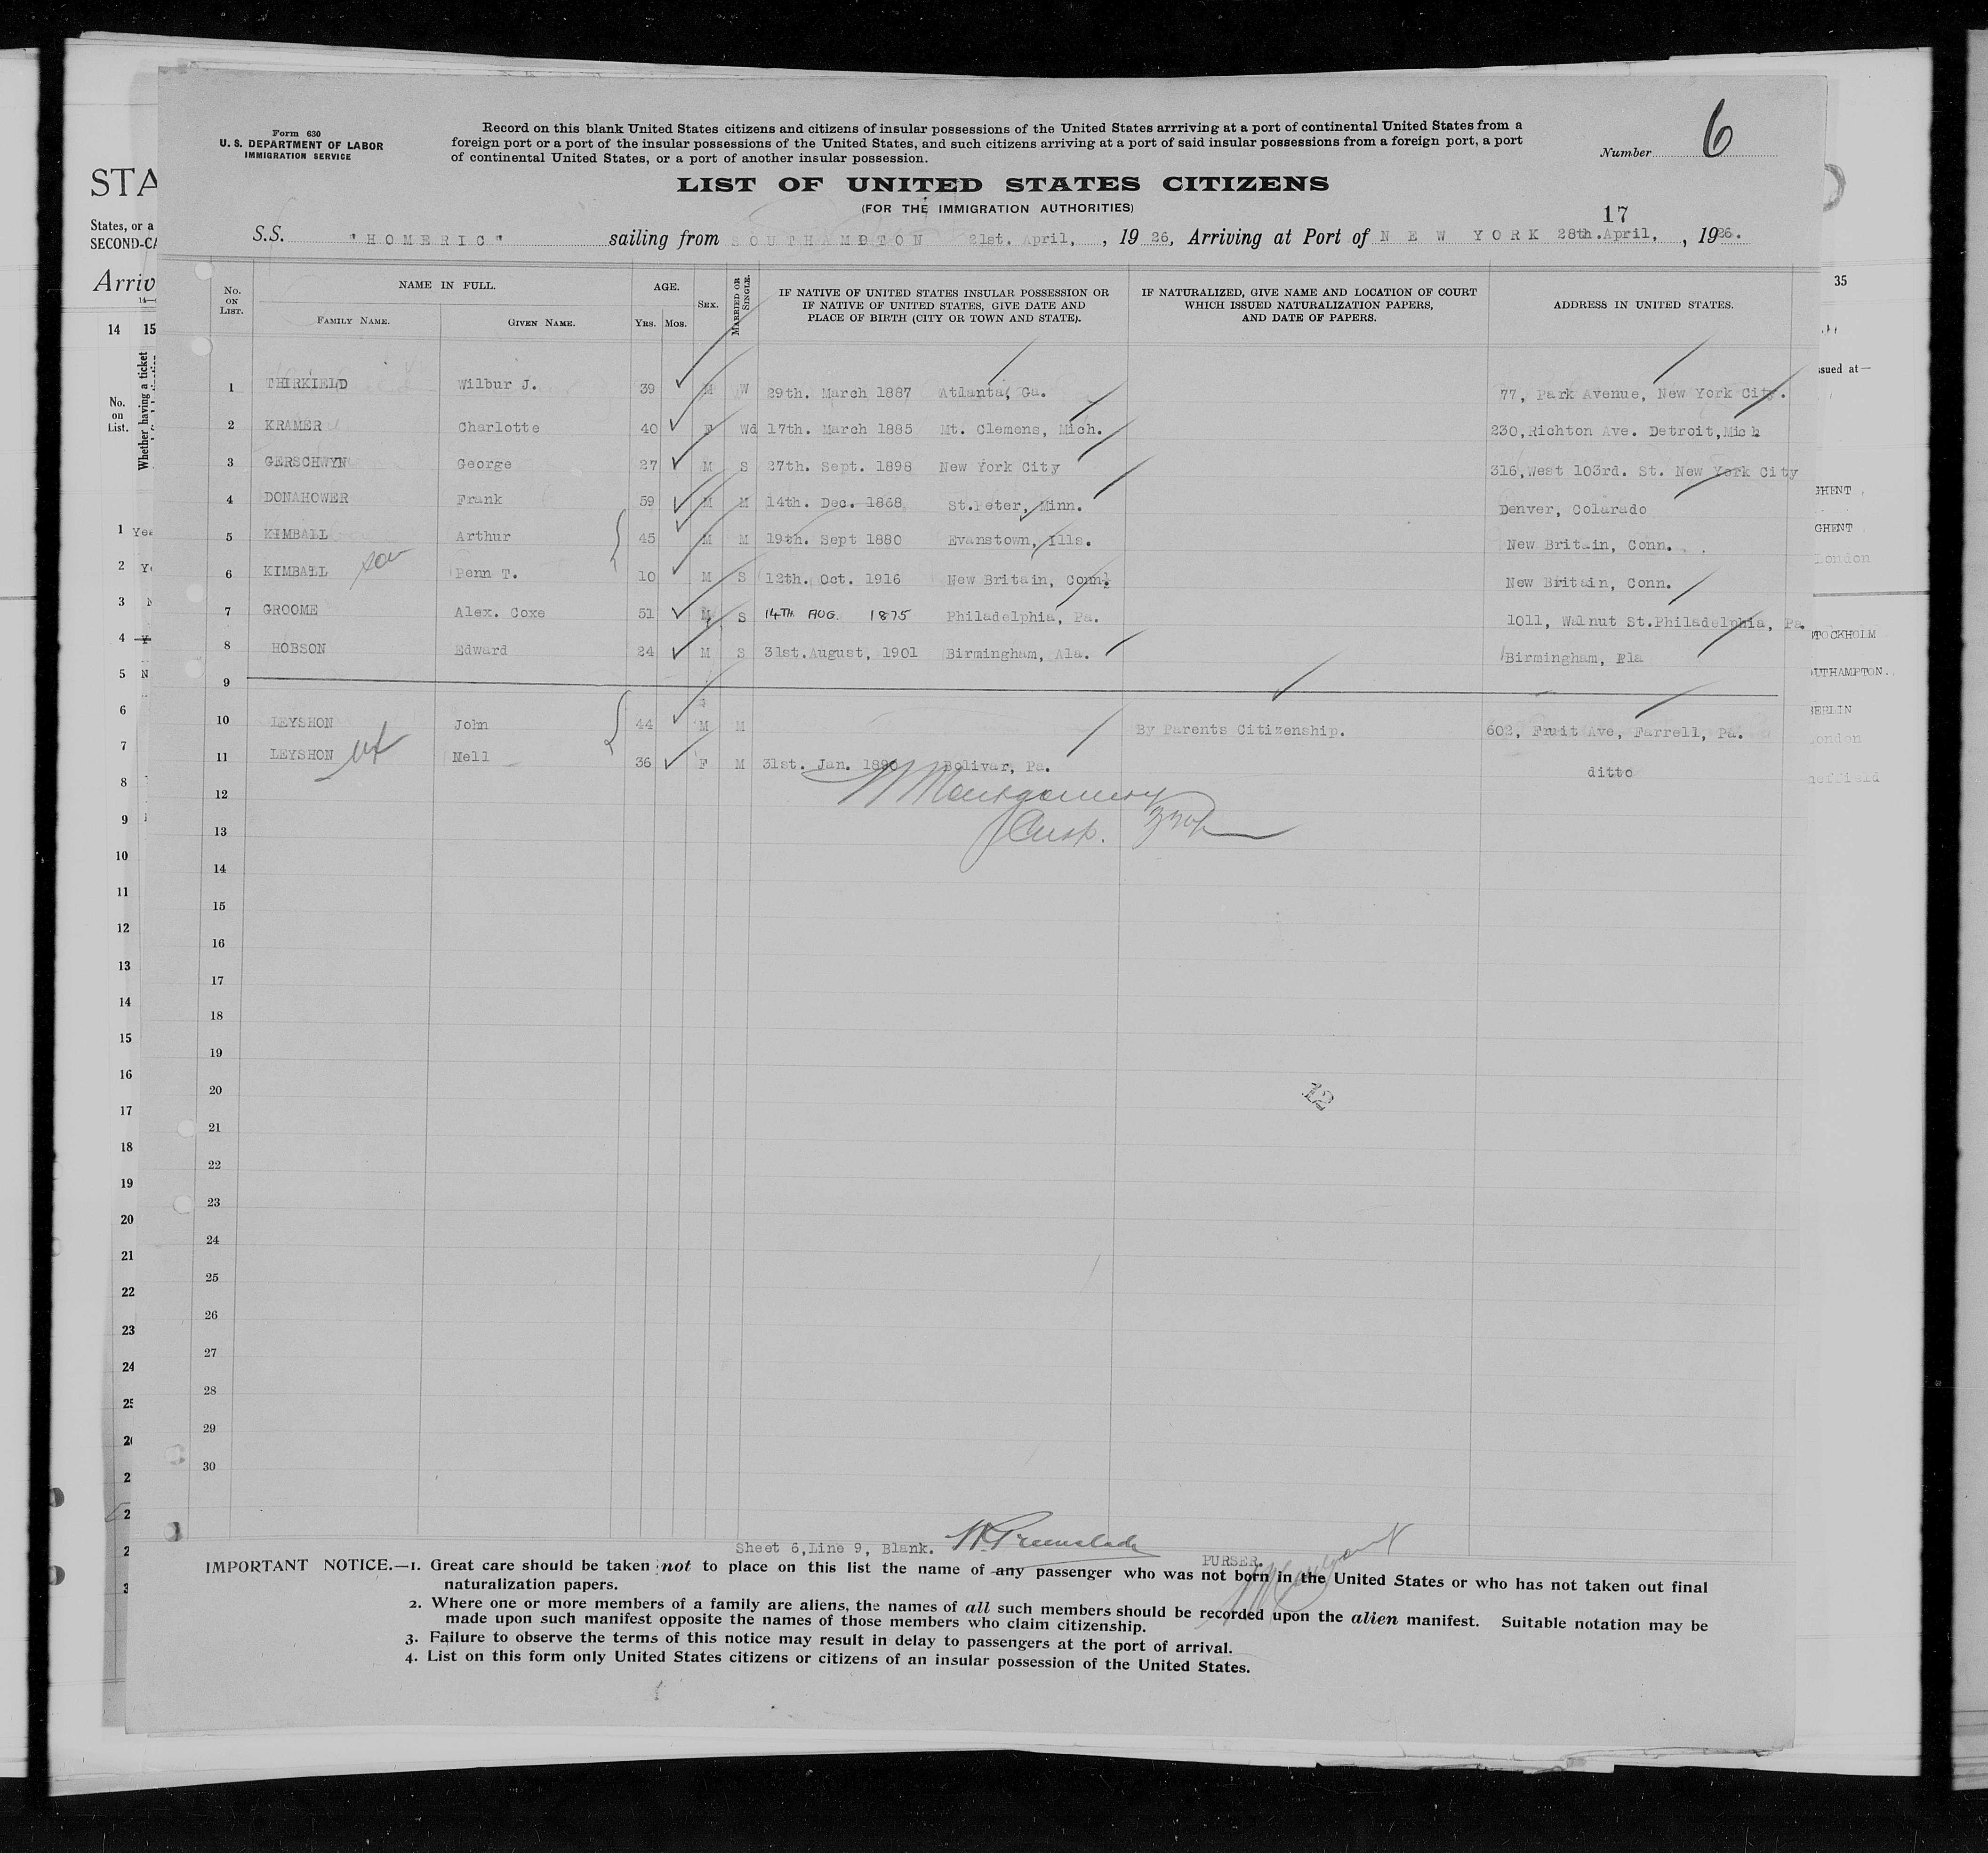 Form 630
U. S. DEPARTMENT OF LABOR
IMMIGRATION SERVICE
Record on this blank United States citizens and citizens of insular possessions of the United States arrriving at a port of continental United States from a
foreign port or a port of the insular possessions of the United States, and such citizens arriving at a port of said insular possessions from a foreign port, a port
of continental United States, or a port of another insular possession.
Number 6
LIST OF UNITED STATES CITIZENS
(FOR THE IMMIGRATION AUTHORITIES)
17
S.S. "HOMERIC" sailing from SOUTHAMPTON 21st. April, , 19 26, Arriving at Port of NEW YORK 28th.April, , 19 26.
No. ON LIST.
NAME IN FULL.
FAMILY NAME.
GIVEN NAME.
AGE.
YRS. MOS.
SEX.
MARRIED OR SINGLE.
IF NATIVE OF UNITED STATES INSULAR POSSESSION OR
IF NATIVE OF UNITED STATES, GIVE DATE AND
PLACE OF BIRTH (CITY OR TOWN AND STATE).
IF NATURALIZED, GIVE NAME AND LOCATION OF COURT
WHICH ISSUED NATURALIZATION PAPERS,
AND DATE OF PAPERS.
ADDRESS IN UNITED STATES.
1 THIRKIELD Wilbur J. 39 M W 29th. March 1887 Atlanta, Ga. 77, Park Avenue, New York City.
2 KRAMER Charlotte 40 F Wd 17th. March 1885 Mt. Clemens, Mich. 230,Richton Ave. Detroit,Mich
3 GERSCHWYN George 27 M S 27th. Sept. 1898 New York City 316,West 103rd. St. New York City
4 DONAHOWER Frank 59 M M 14th. Dec. 1868 St.Peter, Minn. Denver, Colarado
5 KIMBALL Arthur 45 M M 19th. Sept 1880 Evanstown, Ills. New Britain, Conn.
6 KIMBALL son Penn T. 10 M S 12th. Oct. 1916 New Britain, Conn. New Britain, Conn.
7 GROOME Alex. Coxe 51 M S 14TH. AUG. 1875 Philadelphia, Pa. 1011, Walnut St.Philadelphia, Pa.
8 HOBSON Edward 24 M S 31st.August, 1901 Birmingham, Ala. Birmingham, Fla
9
10 LEYSHON John 44 M M By Parents Citizenship. 602, Fruit Ave, Farrell, Pa.
11 LEYSHON Nell 36 F M 31st. Jan. 1890 Bolivar, Pa. ditto
12 Montgomery
13 Insp.
14
15
16
17
18
19
20
12
21
22
23
24
25
26
27
28
29
30
Sheet 6,Line 9, Blank.
PURSER.
IMPORTANT NOTICE.—1. Great care should be taken not to place on this list the name of any passenger who was not born in the United States or who has not taken out final
naturalization papers.
2. Where one or more members of a family are aliens, the names of all such members should be recorded upon the alien manifest. Suitable notation may be
made upon such manifest opposite the names of those members who claim citizenship.
3. Failure to observe the terms of this notice may result in delay to passengers at the port of arrival.
4. List on this form only United States citizens or citizens of an insular possession of the United States.
STA
States, or a
SECOND-CA
Arriv
14 15
Whether having a ticket
No.
on
List.
1 Yes
2
3
4
5
6
7
8
9
10
11
12
13
14
15
16
17
18
19
20
21
22
23
24
35
ssued at—
GHENT
GHENT
London
STOCKHOLM
OUTHAMPTON.
BERLIN
London
heffield